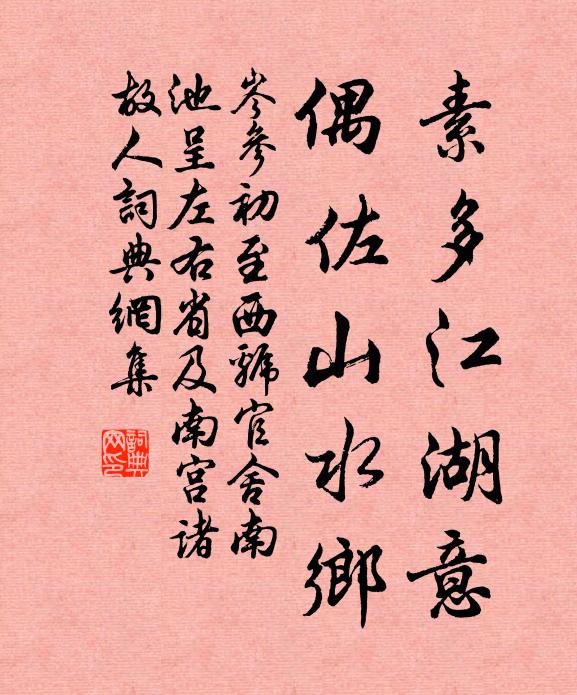 素多江湖意
偶佐山水鄉
岑參初至西虢官舍南
池呈左右省及南宮諸
故人詞典網集
詞典
网印